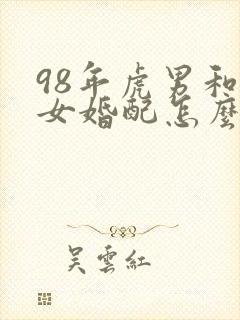 98年虎男和
女婚配怎麼
吴雲紅